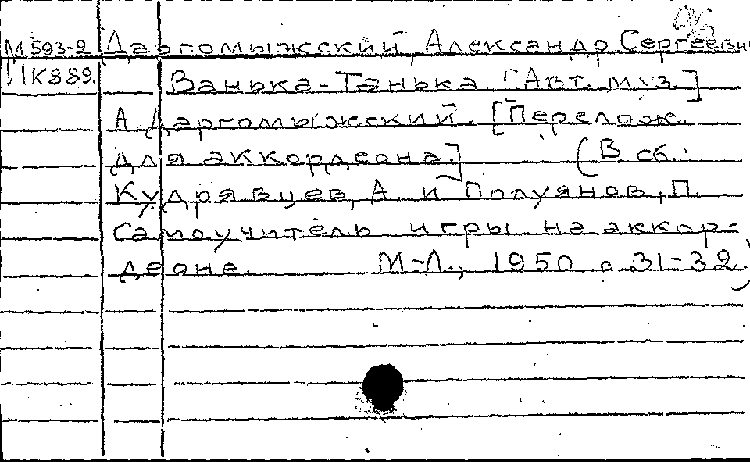 М 593-2 Даргомыжский, Александр Сергеевич
IIК889. Ванька-Танька [Авт. муз.]
А. Даргомыжский. [Перелож.
для аккордеона.] (В сб.:
Кудрявцев, А. и Полуянов, П.
Самоучитель игры на аккор-
деоне. М-Л., 1950 с 31-32)